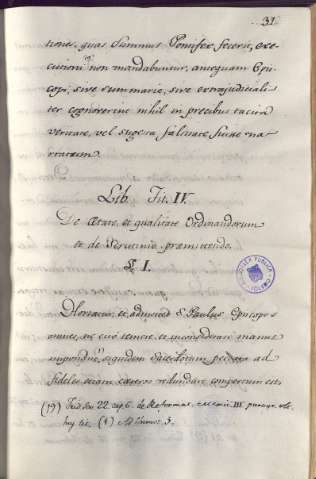 31
tiones, quas Summus Pontifex fecerit, exe-
cutioni non mandabuntur, antequam Epis-
copi, sive summarie, sive extrajudiciali-
ter cognoverint nihil in precibus tacita
veritate, vel sugesta falsitate fuisse nar-
ratum.
Lib. Tit. IV.
De Ætate, et qualitate Ordinandorum
et de Scrutinio præmittendo.
§ I.
Hortatur, et admonet S. Paulus Episcopos
ne cito temere, et inconsiderati manus
imponant, siquidem Sacerdotum ad
fideles etiam cæteros redundare compertum est.
(19) 22 cap. 6. de Reformat.
huj. tit. (1) Ad Timot. 5.